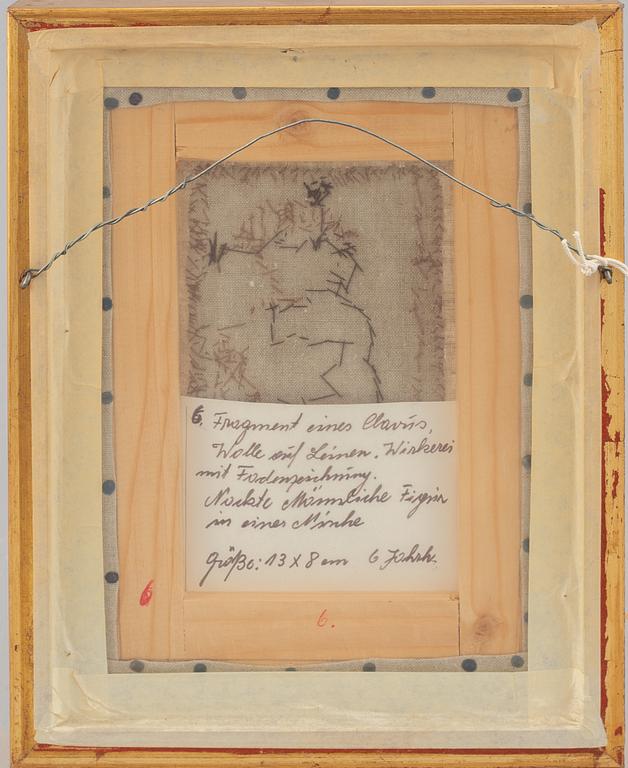 6. Fragment eines Clavus,
Wolle auf Leinen. Wirkerei
mit Fadenzeichnung.
Nackte Männliche Figur
in einer Nische
Größe: 13 x 8 cm 6 Jahrh.
6
6.